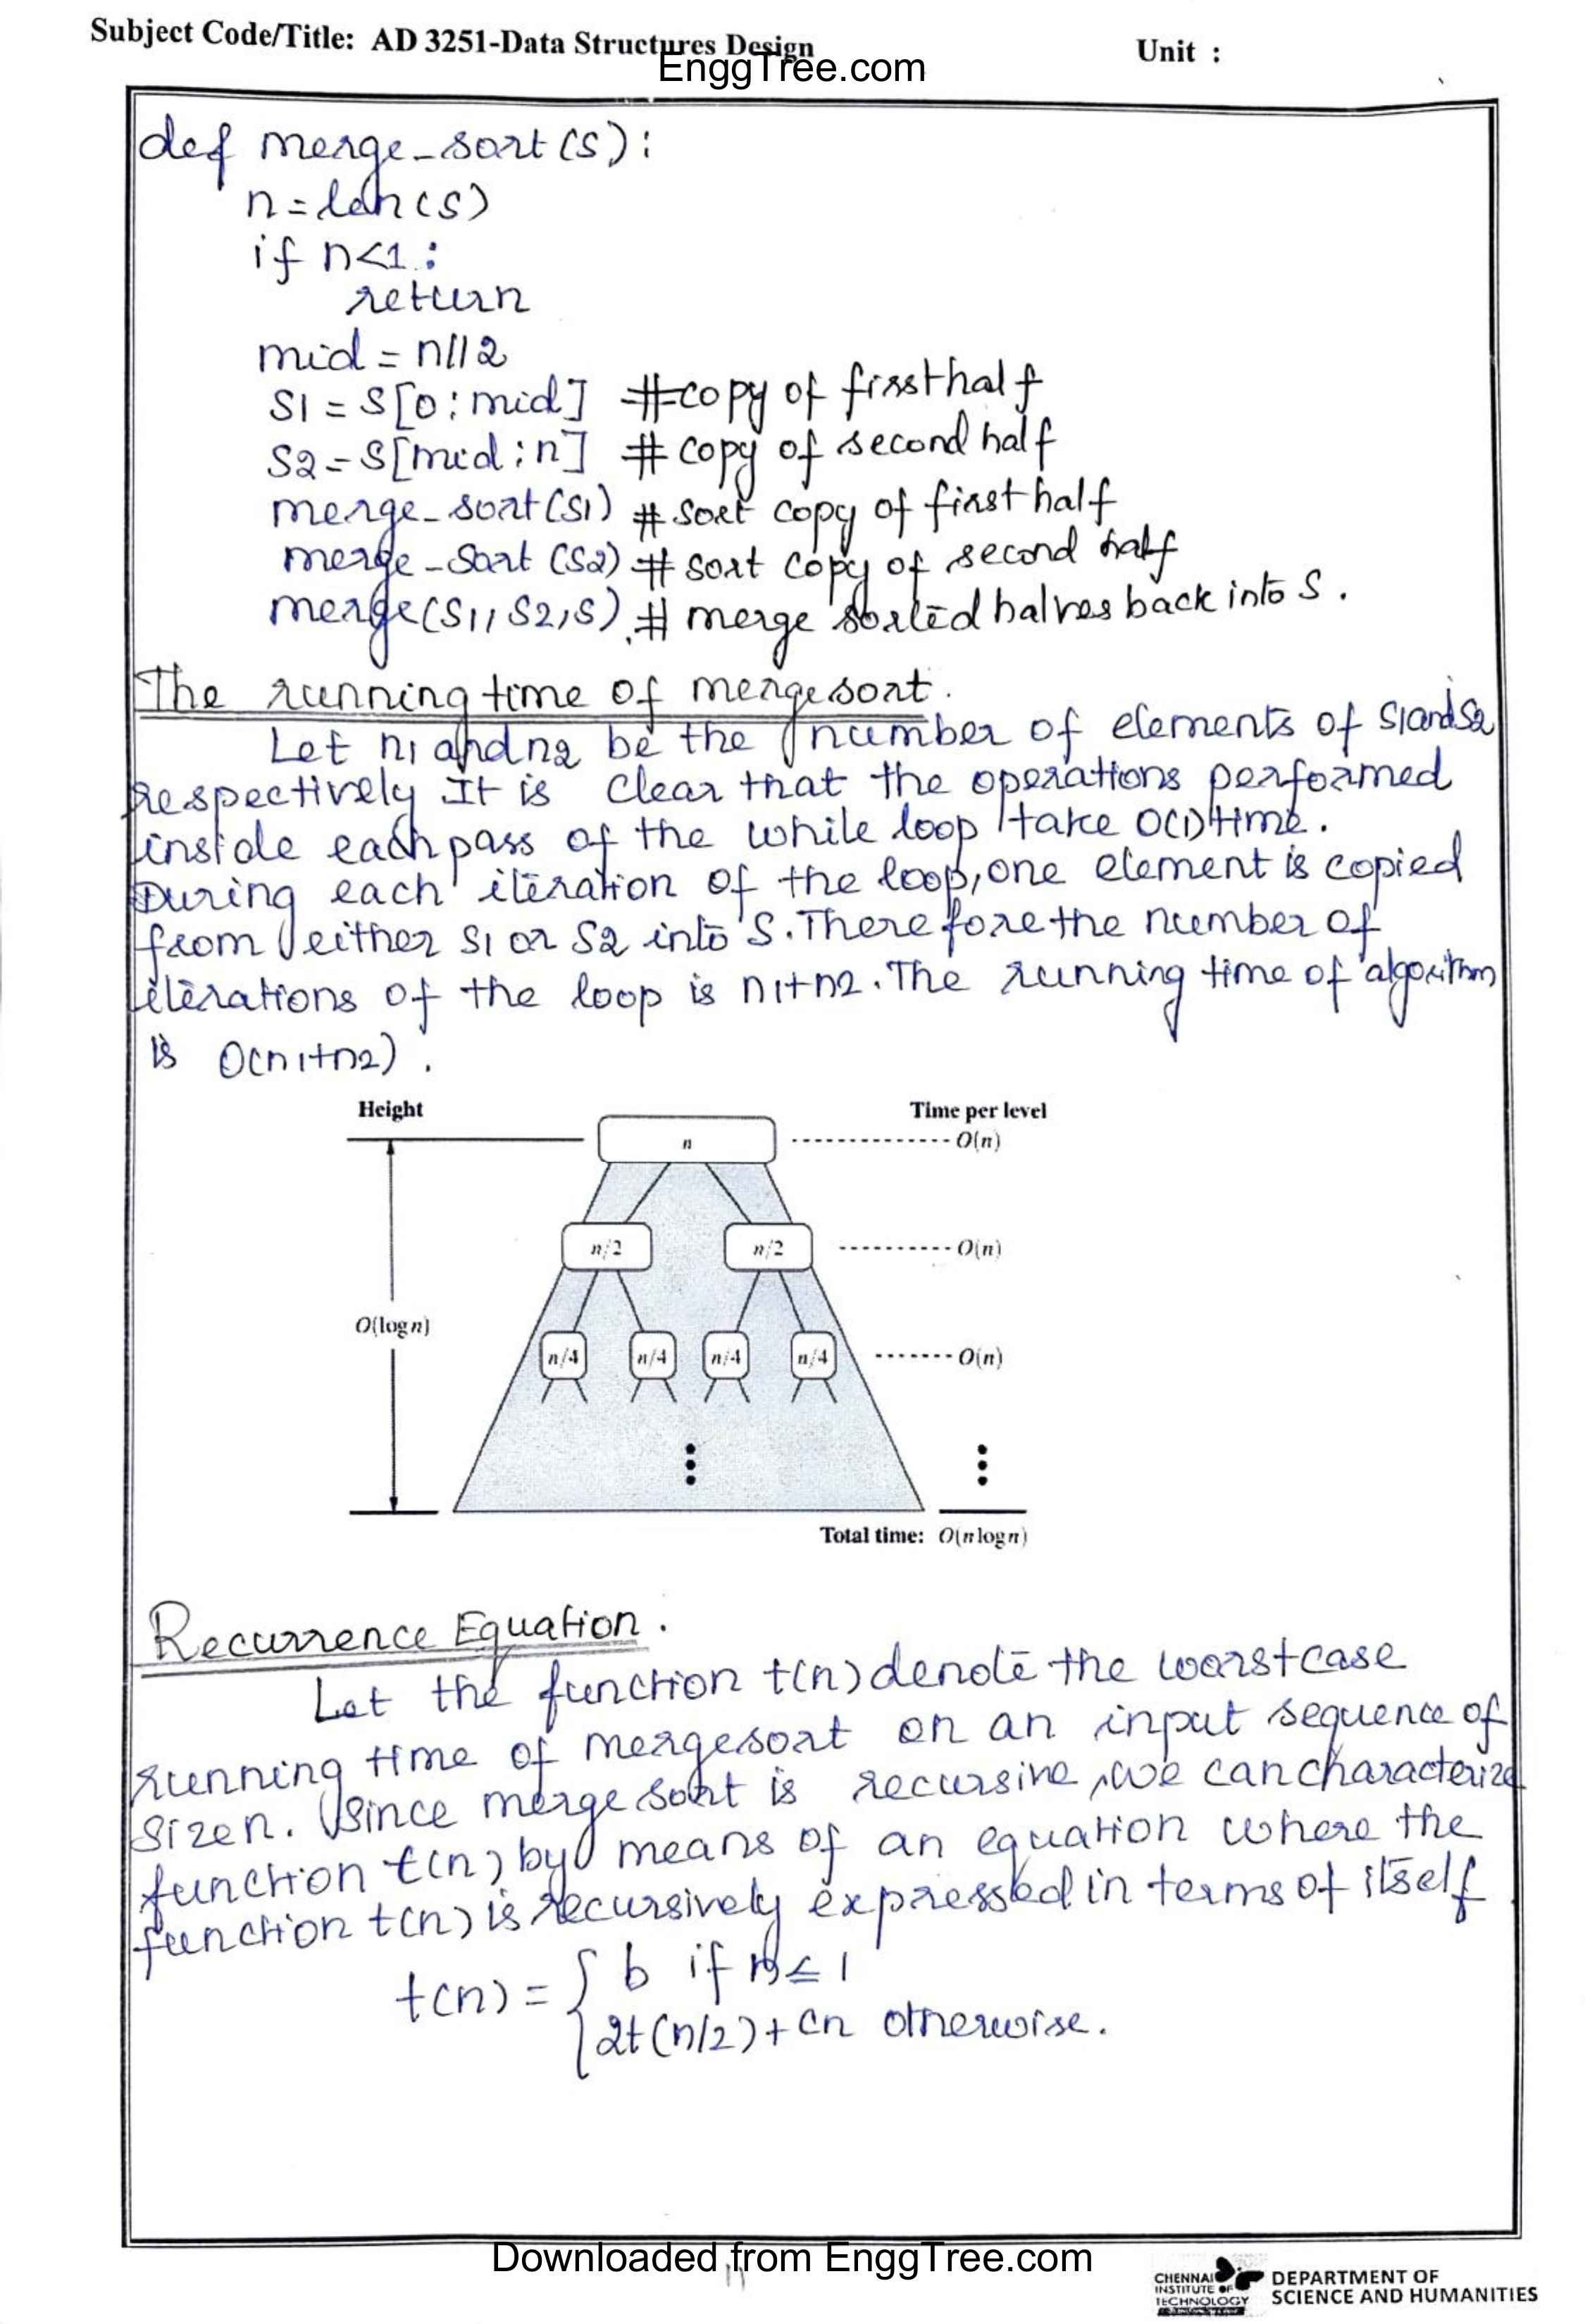 Subject Code/Title: AD 3251-Data Structures Design
Unit :
EnggTree.com
def merge_sort(S):
n=len(S)
if n<1:
return
mid = n//2
S1 = S[0:mid] #copy of first half
S2 = S[mid:n] # copy of second half
merge_sort(S1) # sort copy of first half
merge_sort(S2) # sort copy of second half
merge(S1, S2, S) # merge sorted halves back into S.
The running time of merge sort.
Let n1 and n2 be the number of elements of S1 and S2
respectively It is clear that the operations performed
inside each pass of the while loop take O(1) time.
During each iteration of the loop, one element is copied
from either S1 or S2 into S. Therefore the number of
iterations of the loop is n1+n2. The running time of algorithm
is O(n1+n2).
Height
Time per level
n
O(n)
n/2 n/2
O(n)
O(log n)
n/4 n/4 n/4 n/4
O(n)
Total time: O(n log n)
Recurrence Equation.
Let the function t(n) denote the worst case
running time of merge sort on an input sequence of
size n. Since merge sort is recursive, we can characterize
function t(n) by means of an equation where the
function t(n) is recursively expressed in terms of itself
t(n) = { b if n ≤ 1
2t(n/2)+cn otherwise.
Downloaded from EnggTree.com
CHENNAI
INSTITUTE OF
TECHNOLOGY
DEPARTMENT OF
SCIENCE AND HUMANITIES